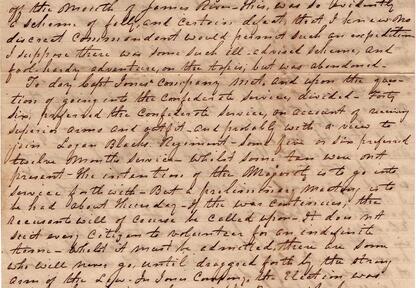 off the Mouth of James River - This, was so evidently
a scheme of folly and certain defeat, that I knew no
discreet Commandant would permit such an expedition
I suppose there was some such ill-advised scheme, and
fool-hardy adventure, on the topis, but was abandoned -
To day Capt Jones' Company, met, and upon the ques-
tion of going into the Confederate Service, divided - Forty
Six, preferred the Confederate Service, on account of receiving
superior arms and outfit - and probably with a view to
join Logan Blacks Regiment - Some five or Six preferred
twelve Months Service - whilst some ten were not
present - The intention of the Majority is to go into
Service forthwith - But a preliminary Meeting is to
be had about Thursday - If the war continues, the
recusants will of course be called upon - It does not
suit every Citizen to volunteer for an indefinite
term - Whilst it must be admitted, there are some
who will never go, until dragged forth by the strong
arm of the Law - In Jones Company, an Election was